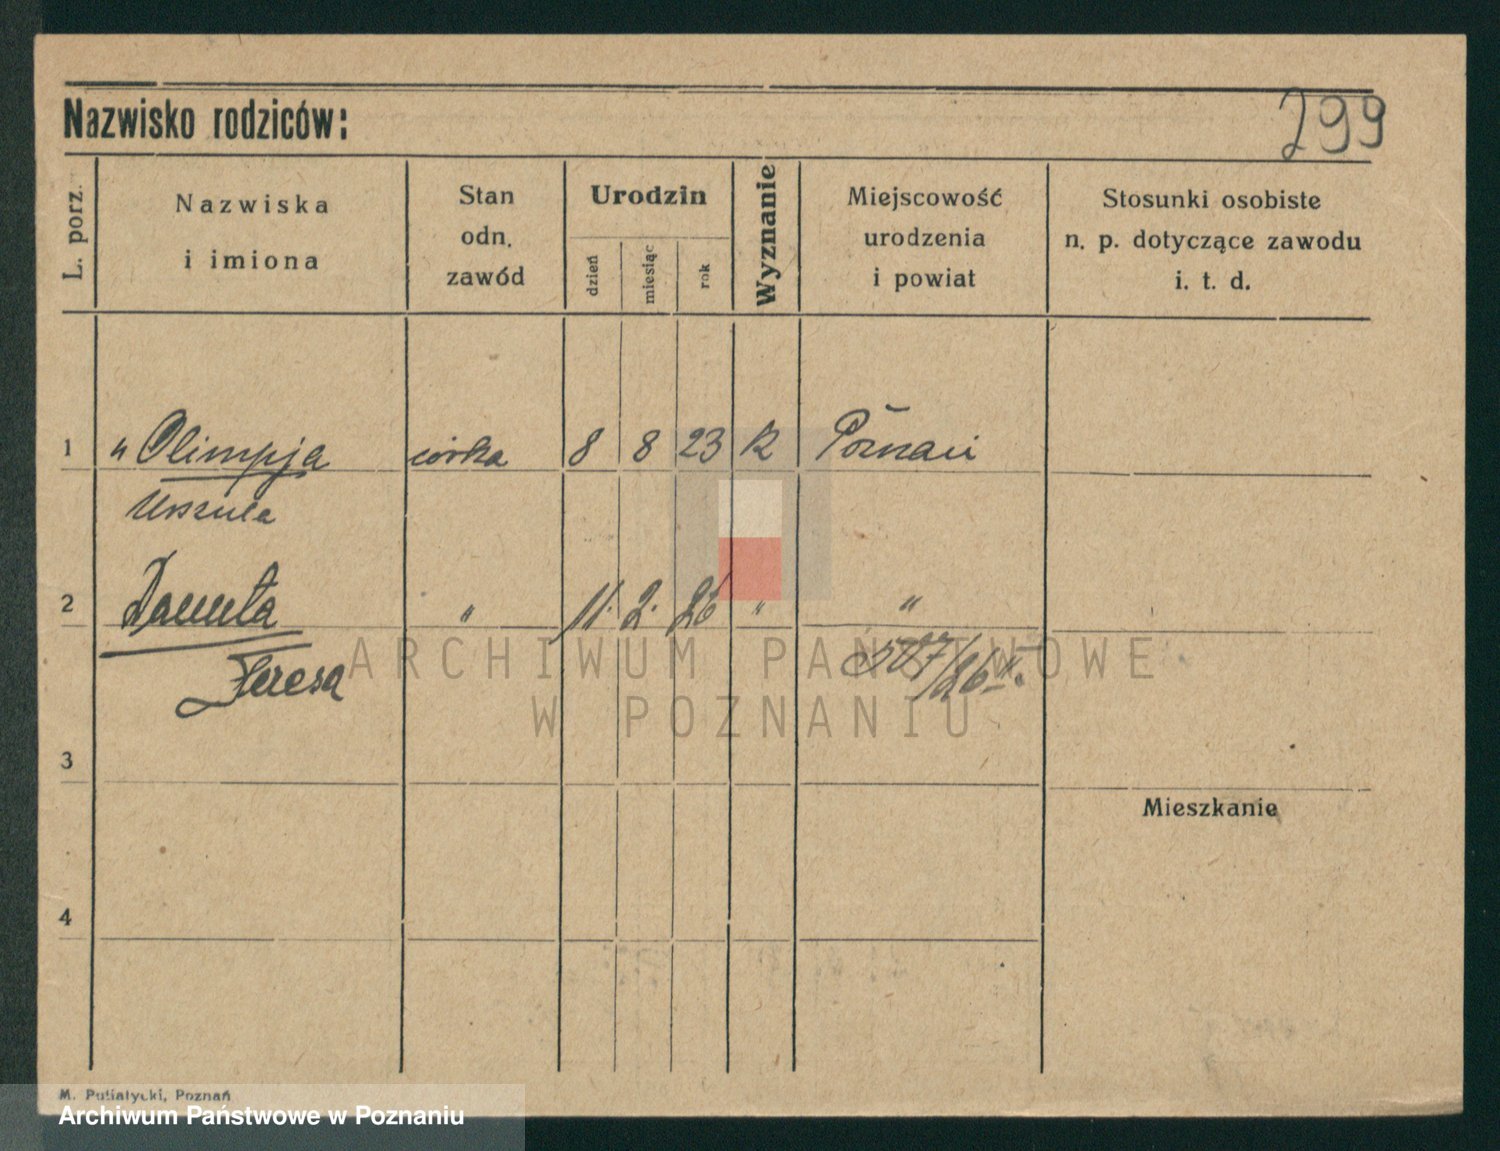 299
Nazwisko rodziców:
L. porz.
Nazwiska
i imiona
Stan
odn.
zawód
Urodzin
dzień
miesiąc
rok
Wyznanie
Miejscowość
urodzenia
i powiat
Stosunki osobiste
n. p. dotyczące zawodu
i. t. d.
1 " Olimpja córka 8 8 23 K Poznań
Urszula
2 Danuta " 11. 2. 26 " "
Teresa
507/26 II.
ARCHIWUM PAŃSTWOWE
W POZNANIU
3
Mieszkanie
4
M. Putiatycki, Poznań
Archiwum Państwowe w Poznaniu